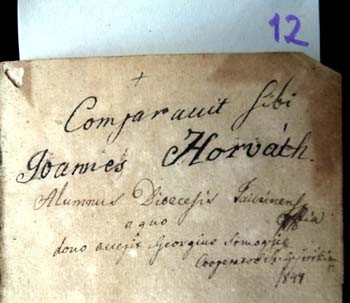 12
Comparavit sibi
Joannes Horváth.
Alumnus Diocesis Jaurinen
a quo
dono accepit Georgius Somogyi
Cooperator
1844